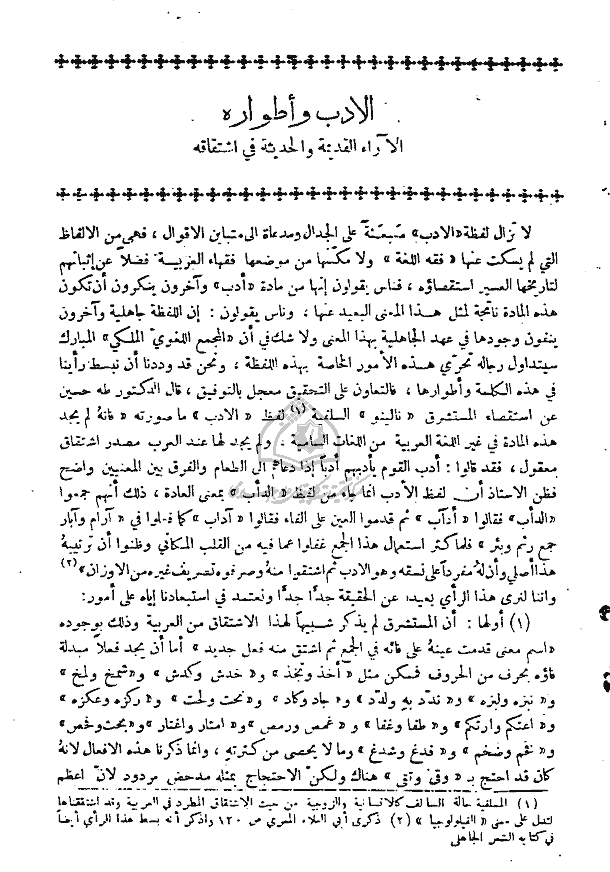 الادب وأطواره
الآراء القديمة والحديثة في اشتقاقه
لا تزال لفظة «الادب» متبعثة على الجدال ومدعاة الى متباين الاقوال ، فهي من الالفاظ
التي لم يسكت عنها «فقه اللغة» ولا مكنها من موضعها فقهاء العربية فضلاً عن إثباتهم
لتاريخها العسير استقصاؤه ، فناس يقولون إنها من مادة «أدب» وآخرون ينكرون أن تكون
هذه المادة ناتجة لمثل هذا المعنى البعيد عنها ، وناس يقولون : إن اللفظة جاهلية وآخرون
ينفون وجودها في عهد الجاهلية بهذا المعنى ولا شك في أن «المجمع اللغوي الملكي» المبارك
سيتداول رجاله تحرّي هذه الأمور الخاصة بهذه اللفظة ، ونحن قد وددنا أن نبسط رأينا
في هذه الكلمة وأطوارها ، فالتعاون على التحقيق معجل بالتوفيق ، قال الدكتور طه حسين
عن استقصاء المستشرق «نالينو» السلفية (١) لفظ «الادب» ما صورته «فانهُ لم يجد
هذه المادة في غير اللغة العربية من اللغات السامية ، ولم يجد لها عند العرب مصدر اشتقاق
معقول ، فقد قالوا : أدب القوم يأدبهم أدباً إذا دعاهم الى الطعام والفرق بين المعنيين واضح
فظن الاستاذ أن لفظ الأدب انما جاء من لفظ «الدأب» بمعنى العادة ، ذلك أنهم جمعوا
«الدأب» فقالوا «أدآب» ثم قدموا العين على الفاء فقالوا «آداب» كما فعلوا في «آرام وآبار
جمع رئم وبئر» فلما كثر استعمال هذا الجمع غفلوا عما فيه من القلب المكاني وظنوا أن ترتيبهُ
هذا أصلي وأن لهُ مفرداً على نسقه وهو الادب ثم اشتقوا منهُ وصرفوه تصريف غيره من الاوزان» (٢)
واننا لنرى هذا الرأي بعيداً عن الحقيقة جدًّا جدًّا ونعتمد في استبعادنا إياه على أمور:
(١) أولها : أن المستشرق لم يذكر شبيهاً لهذا الاشتقاق من العربية وذلك بوجوده
«اسم معنى قدمت عينهُ على فائه في الجمع ثم اشتق منه فعل جديد» أما أن يجد فعلاً مبدلة
فاؤه بحرف من الحروف فممكن مثل «أخذ وتخذ» و«خدش وكدش» و«شمخ ولمخ»
و«نبزه ولبزه» و«ندّد به ولدّد» و«جاد وكاد» و«نحت ولحت» و«ركزه وعكزه»
و«اعتكم وارتكم» و«طفا وغفا» و«غمص ورمص» و«امتار واغتار» و«بحث وفحص»
و«فخم وضخم» و«فدغ وشدغ» وما لا يحصى من كثرته ، وانما ذكرنا هذه الافعال لانهُ
كان قد احتج بـ«وقى وتقى» هناك ولكنّ الاحتجاج بمثله مدحض مردود لانّ اعظم
(١) السلفية حالة السالف كالانسانية والزوجية من حيث الاشتقاق المطرد في العربية وقد اشتقناها
لتدل على معنى «الفيلولوجيا» (٢) ذكرى أبي العلاء المعري ص ١٢٠ واذكر أنه بسط هذا الرأي أيضاً
في كتابه الشعر الجاهلي